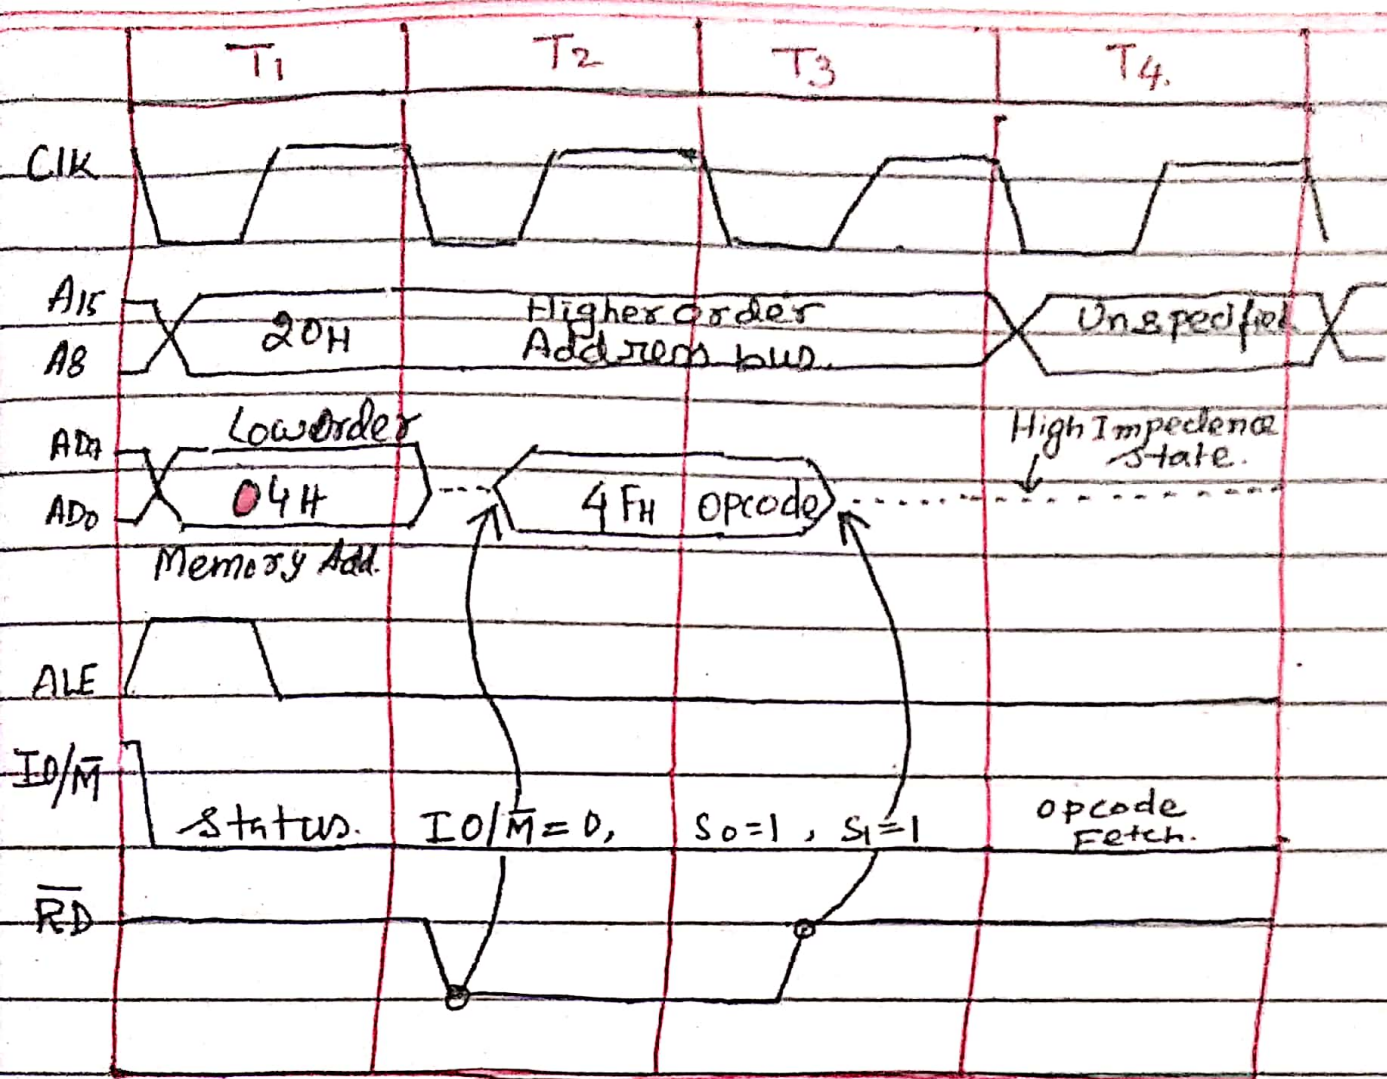 T1 T2 T3 T4.
ClK
A15
A8
20H
Higher order
Address bus.
Unspecified
AD7
AD0
Low order
04H
Memory Add.
4FH opcode
High Impedence
state.
ALE
IO/M̅
status. IO/M̅=0, S0=1, S1=1
opcode
Fetch.
R̅D̅